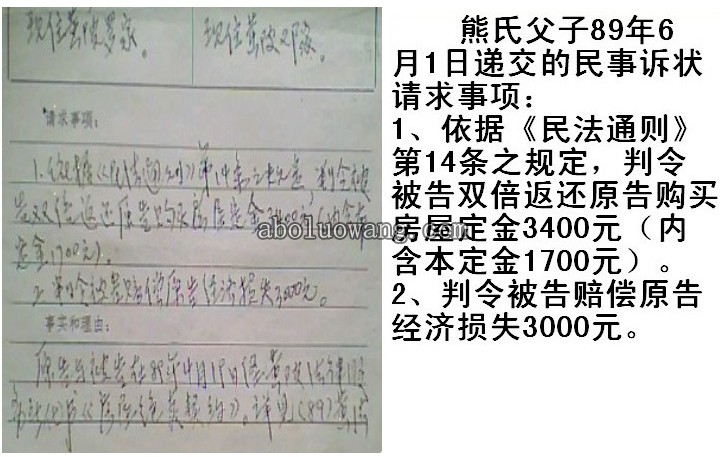 现住黄陂罗家。
现住黄陂邓家。
请求事项：
1.依据《民法通则》第14条之规定，判令被
告双倍返还原告购买房屋定金3400元（内含本
定金1700元）。
2.判令被告赔偿原告经济损失3000元。
事实和理由：
原告与被告在89年4月19日经黄陂
《房屋 契约》。详见（89）黄
aboluowang.com
熊氏父子89年6
月1日递交的民事诉状
请求事项：
1、依据《民法通则》
第14条之规定，判令
被告双倍返还原告购买
房屋定金3400元（内
含本定金1700元）。
2、判令被告赔偿原告
经济损失3000元。